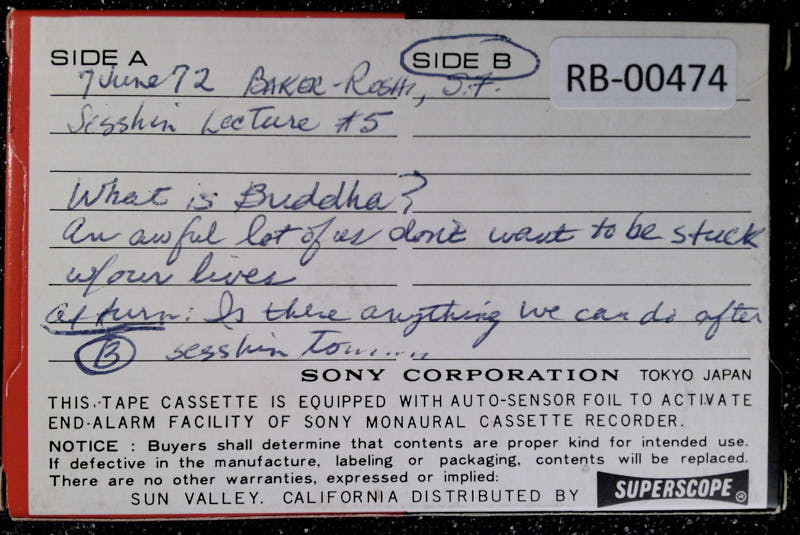 SIDE A SIDE B RB-00474
7 June 72 BAKER-ROSHI, S.F.
Sesshin Lecture #5
What is Buddha?
An awful lot of us don't want to be stuck
w/our lives
at turn: Is there anything we can do after
B sesshin to.......
SONY CORPORATION TOKYO JAPAN
THIS TAPE CASSETTE IS EQUIPPED WITH AUTO-SENSOR FOIL TO ACTIVATE
END-ALARM FACILITY OF SONY MONAURAL CASSETTE RECORDER.
NOTICE : Buyers shall determine that contents are proper kind for intended use.
If defective in the manufacture, labeling or packaging, contents will be replaced.
There are no other warranties, expressed or implied:
SUN VALLEY. CALIFORNIA DISTRIBUTED BY SUPERSCOPE®